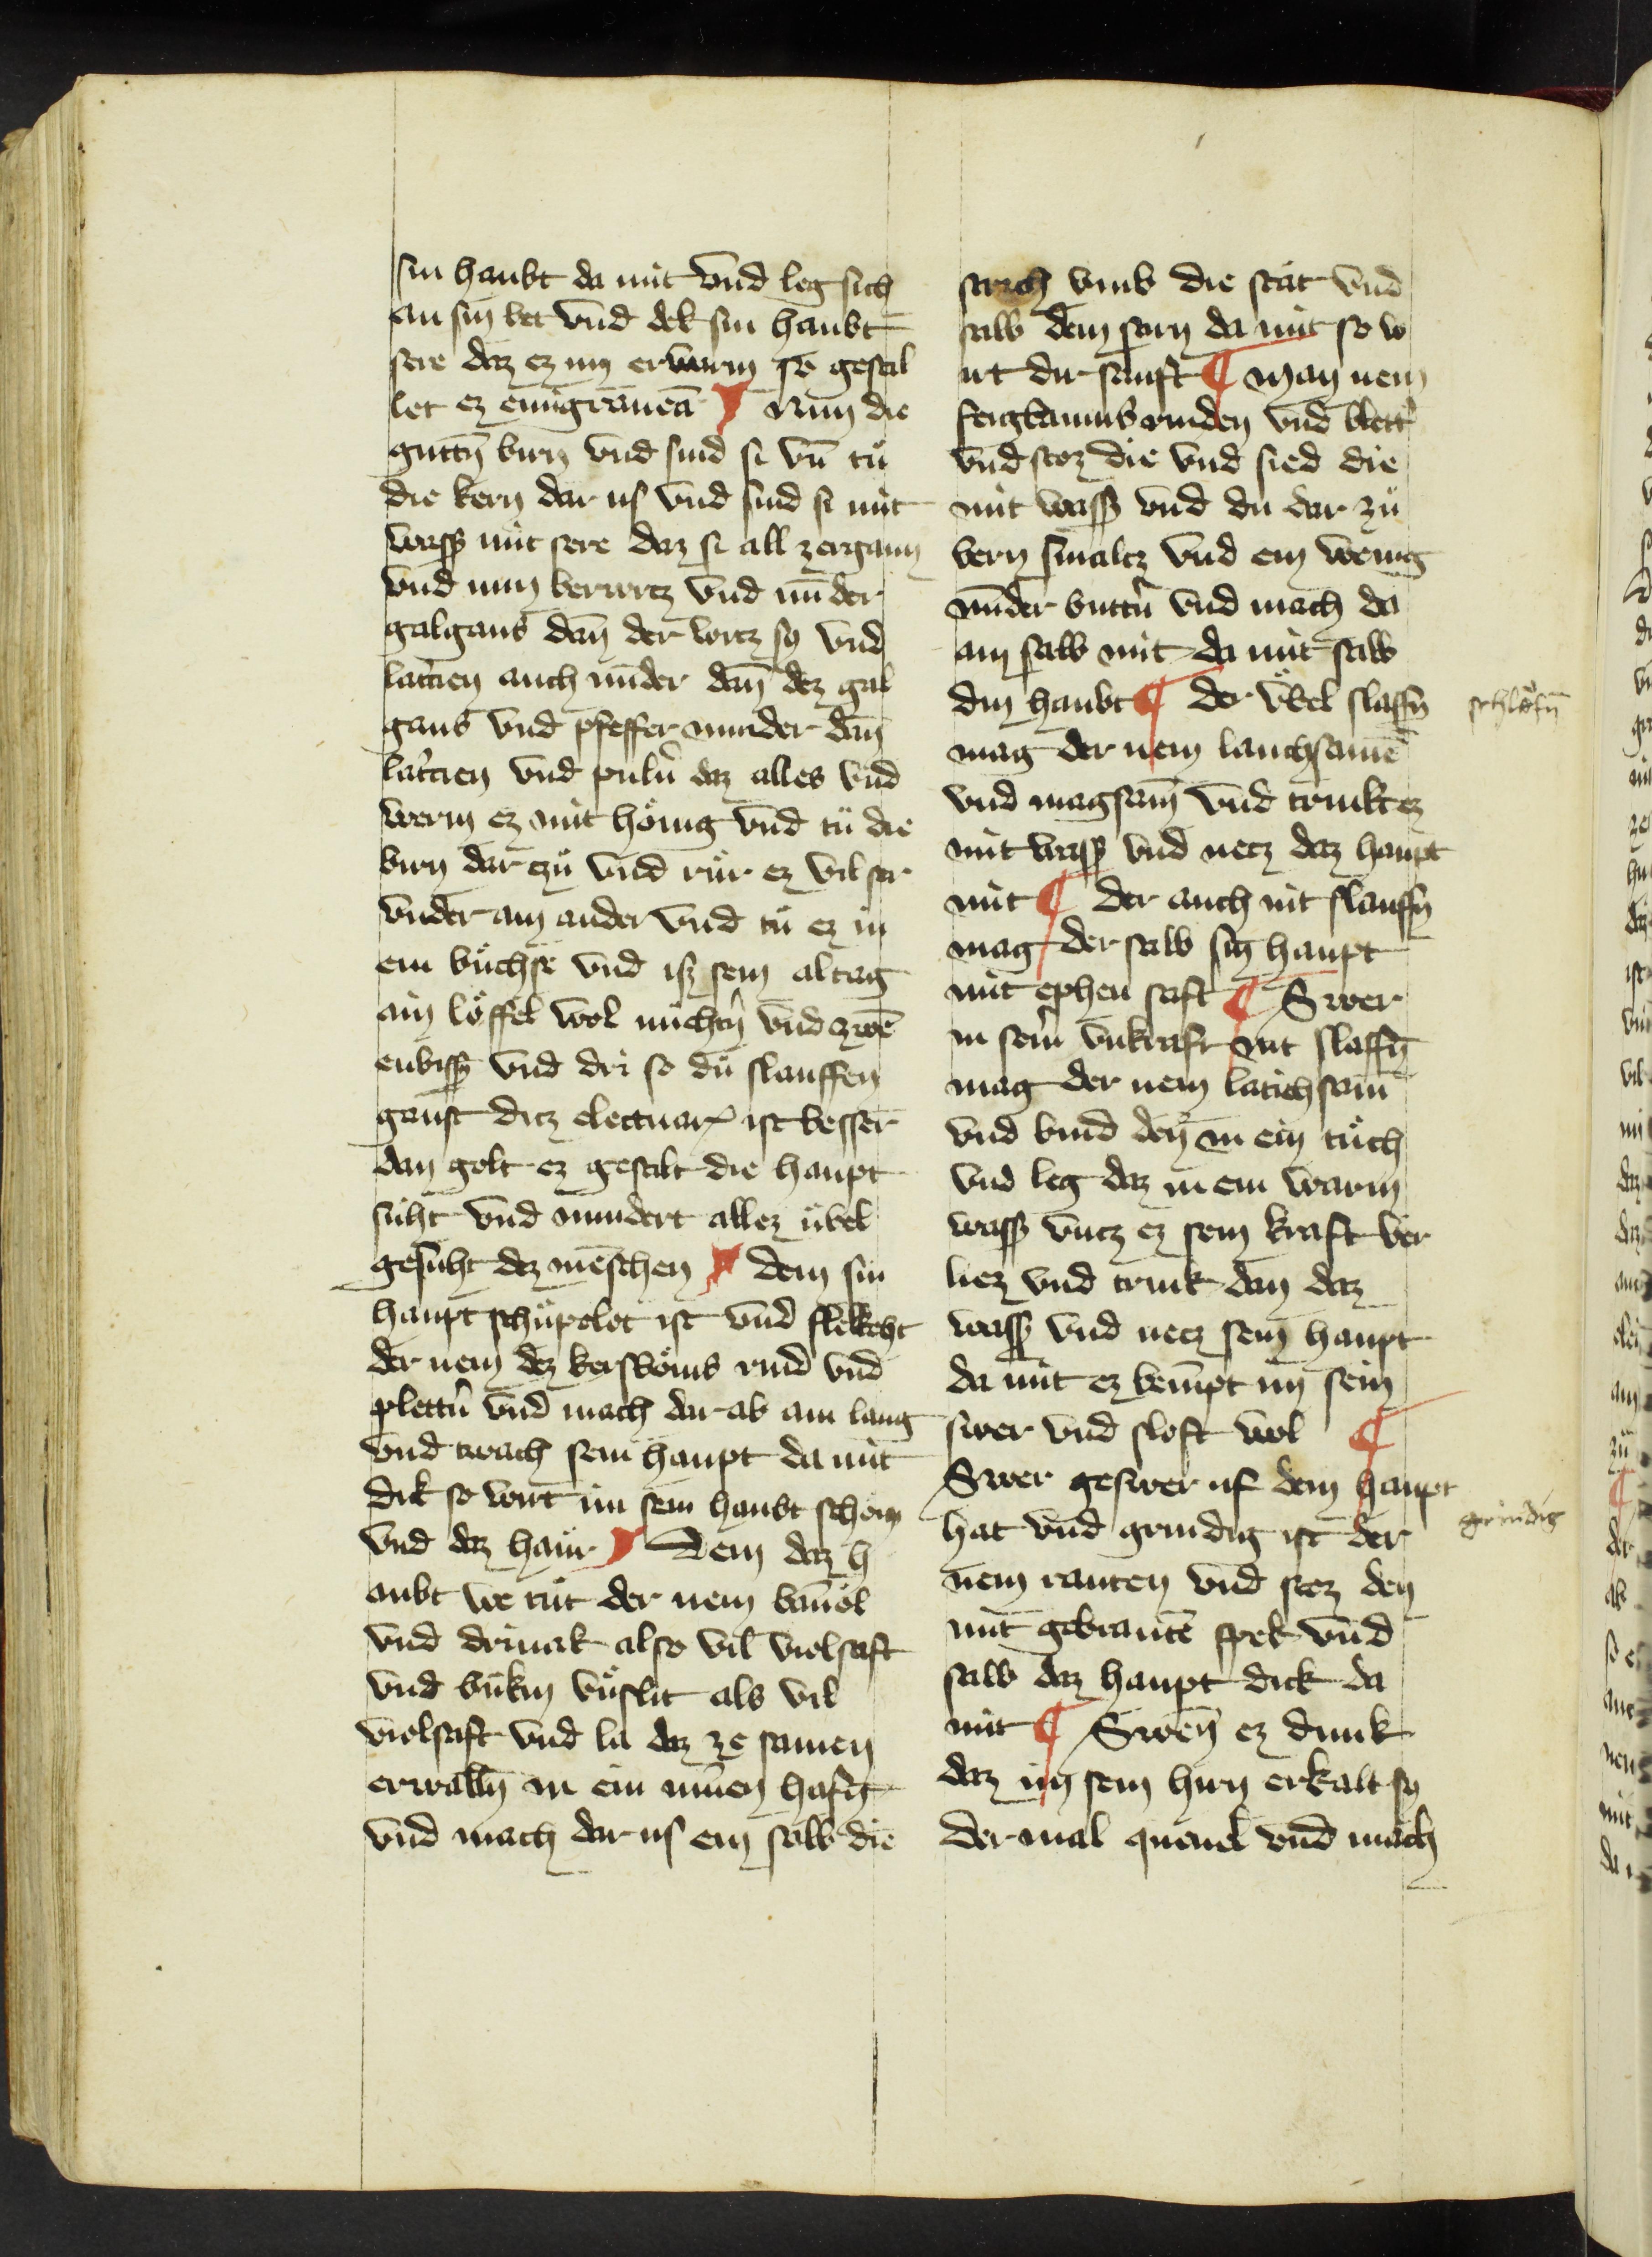 sin haubt da mit vnd leg sich
an sin bet vnd dek sin haubt
sere daz ez im erwarm so gestal
let ez emigraneā ¶ Nim die
guttn̄ birn vnd siud si vn̄ tuͦ
die kern dar us vnd siud si mit
wasser mit sere daz si all zergann
vnd nim berwrcz vnd minder
galgans dan̄ der wrcz sy vnd
latricien auch minder dan̄ dez gal
gans vnd pfeffer minder dan̄
latricien vnd puluer daz alles vnd
werm ez mit hönig vnd tuͦ die
birn dar czuͦ vnd ruͤr ez vil ser
vnder ain ander vnd tuͦ ez in
ein buͤchse vnd isz sein altag
ain löffel vol nuͤchtern vnd zwen
enbissen vnd dri so duͦ slauffen
gaust dicz electuary ist besser
dan golt ez gestalt die haupt
suͤht vnd mindert allez uͤbel
gesuͤht dez menschen ¶ dem sin
haupt schuͤpelot ist vnd flekeht
der nem dez kersböms rind vnd
plettern vnd mach dar ab ain laug
vnd twach sein haupt da mit
dik so wirt im sein haubt schoͤn
vnd daz haͤur ¶ Dem daz h
aubt we tuͦt der nem bamöl
vnd drinak also vil violsaft
vnd bukin vͤnslit als vil
violsaft vnd la daz ze samen
erwallen in ein niwen hafen
vnd mach dar us ein salb die
strich vmb die stat vnd
salb dein stirn da mit so w
irt dir sanft ¶ Man nem
feigbaums rinden vnd bletter
vnd stoz die vnd sied die
mit wasser vnd du dar zuͦ
bern smalcz vnd ein wenig
minder buttern vnd mach da
ain salb mit da mit salb
din haubt ¶ der vͤbel slaffn̄
mag der nem lauchsamē
vnd magsam̄ vnd trinkt ez
mit wasser vnd necz daz haupt
mit ¶ der auch nit slauffn̄
mag der salb sin haupt
mit ephen saft ¶ Swer
in seiner vnkraft nit slaffn̄
mag der nem latichsam̄
vnd bind den in ein tuͦch
vnd leg daz in ein warm
wasser vncz ez sein kraft ver
liez vnd trink dan daz
wasser vnd necz sein haupt
da mit ez benimpt im sein
swer vnd sloft wol ¶
Swer geswer uf dem haupt
hat vnd grindig ist der
nem rauten vnd stoz den
mit gebrantē spek vnd
salb daz haupt dick da
mit ¶ Swen ez dunk
daz im sein hirn erkalt sy
der mal quenel vnd mach
schlaͤfn̄
grindig